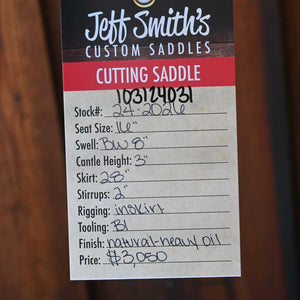 Jeff Smith's
CUSTOM SADDLES
CUTTING SADDLE
103124031
Stock#: 24-2026
Seat Size: 16"
Swell: BW 8"
Cantle Height: 3"
Skirt: 28"
Stirrups: 2"
Rigging: inskirt
Tooling: BI
Finish: natural-heavy oil
Price: $3,050